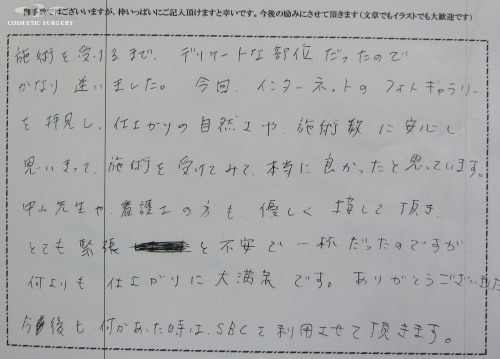 御手数ではございますが、枠いっぱいにご記入頂けますと幸いです。今後の励みにさせて頂きます(文章でもイラストでも大歓迎です)
COSMETIC SURGERY
施術を受けるまで、デリケートな部位だったので
かなり迷いました。今回、インターネットのフォトギャラリー
を拝見し、仕上がりの自然さや、施術数に安心し、
思いきって、施術を受けてみて、本当に良かったと思っています。
中山先生や、看護士の方も、優しく接して頂き、
とても緊張と不安で一杯だったのですが
何よりも仕上がりに大満足です。ありがとうございました
今後も、何かあった時は、SBCを利用させて頂きます。